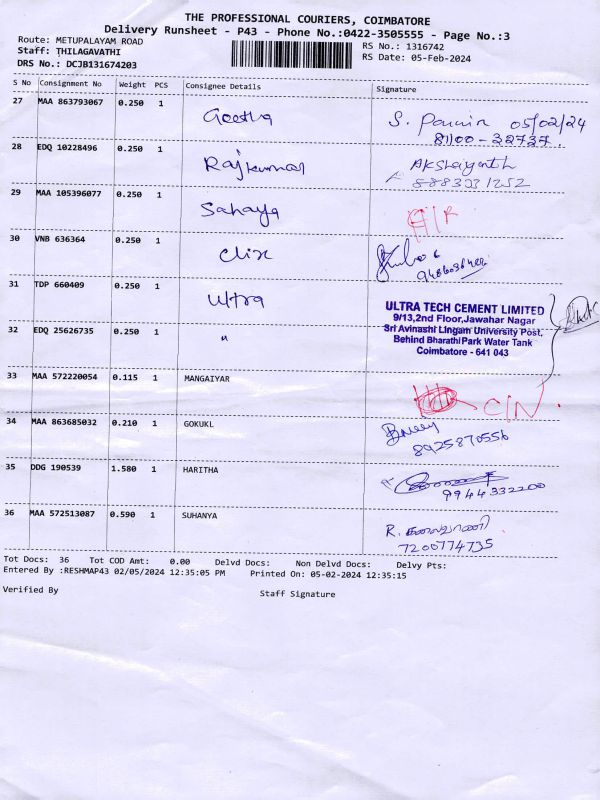 THE PROFESSIONAL COURIERS, COIMBATORE
Delivery Runsheet - P43 - Phone No.:0422-3505555 - Page No.:3
Route: METUPALAYAM ROAD
RS No.: 1316742
Staff: THILAGAVATHI
RS Date: 05-Feb-2024
DRS No.: DCJB131674203
S No Consignment No Weight PCS Consignee Details Signature
27 MAA 863793067 0.250 1 Geetha S. 05/02/24
81100-32737.
28 EDQ 10228496 0.250 1 Rajkumar
8883231252
29 MAA 105396077 0.250 1 Sahaya
30 VNB 636364 0.250 1 Clix
31 TDP 660409 0.250 1 Ultra
ULTRA TECH CEMENT LIMITED
9/13,2nd Floor,Jawahar Nagar
Sri Avinashi Lingam University Post,
Behind Bharathi Park Water Tank
Coimbatore - 641 043
32 EDQ 25626735 0.250 1 "
33 MAA 572220054 0.115 1 MANGAIYAR C/N
34 MAA 863685032 0.210 1 GOKUKL
8925870556
35 DDG 190539 1.580 1 HARITHA
9944332200
36 MAA 572513087 0.590 1 SUHANYA
R. கலைவாணி
7200774735
Tot Docs: 36 Tot COD Amt: 0.00 Delvd Docs: Non Delvd Docs: Delvy Pts:
Entered By :RESHMAP43 02/05/2024 12:35:05 PM Printed On: 05-02-2024 12:35:15
Verified By Staff Signature